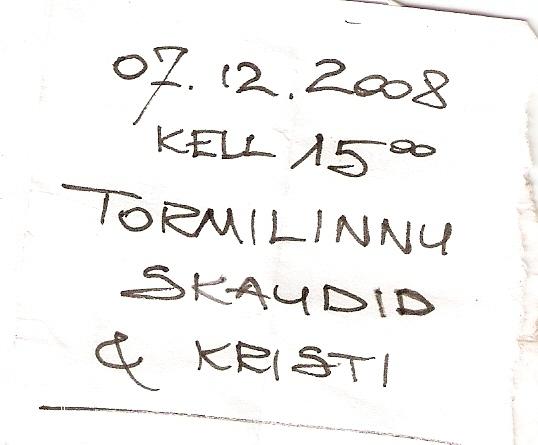 07.12.2008
KELL 15⁰⁰
TORMILINNU
SKAUDID
& KRISTI